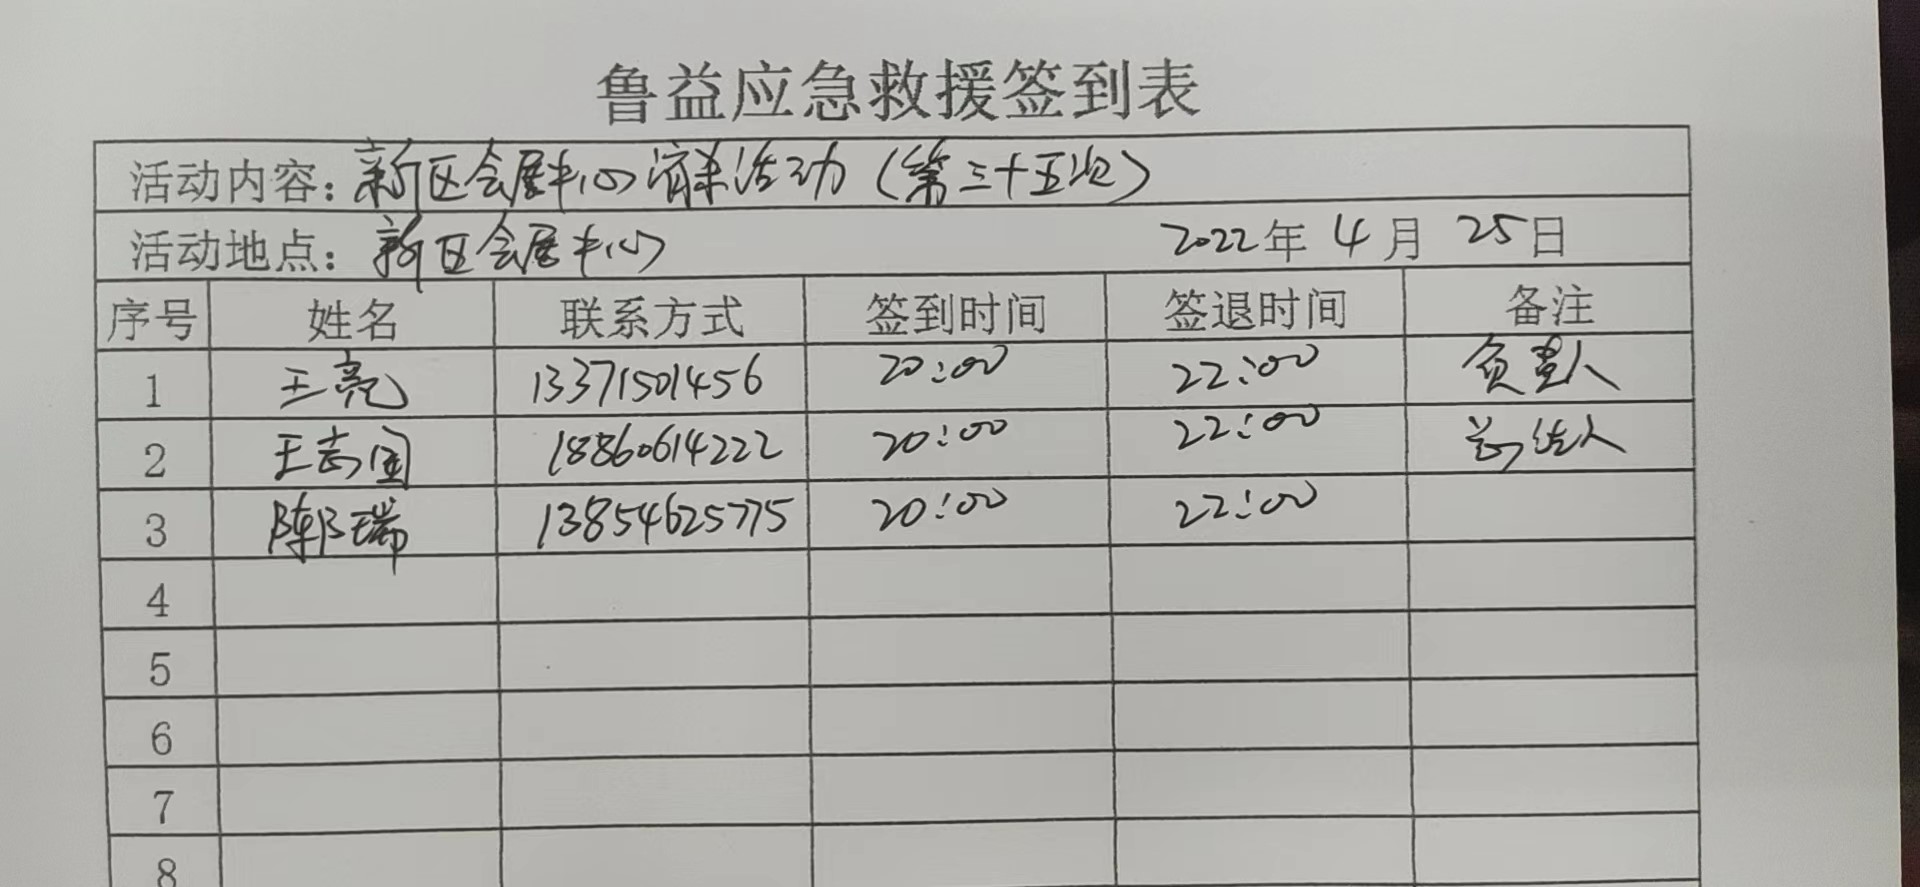 鲁益应急救援签到表
活动内容：新区会展中心消杀活动（第三十五次）
活动地点：新区会展中心 2022年 4月 25日
序号 姓名 联系方式 签到时间 签退时间 备注
1 王亮 13371501456 20:00 22:00 负责人
2 王志国 18860614222 20:00 22:00
3 陈瑞 13854625775 20:00 22:00
4
5
6
7
8